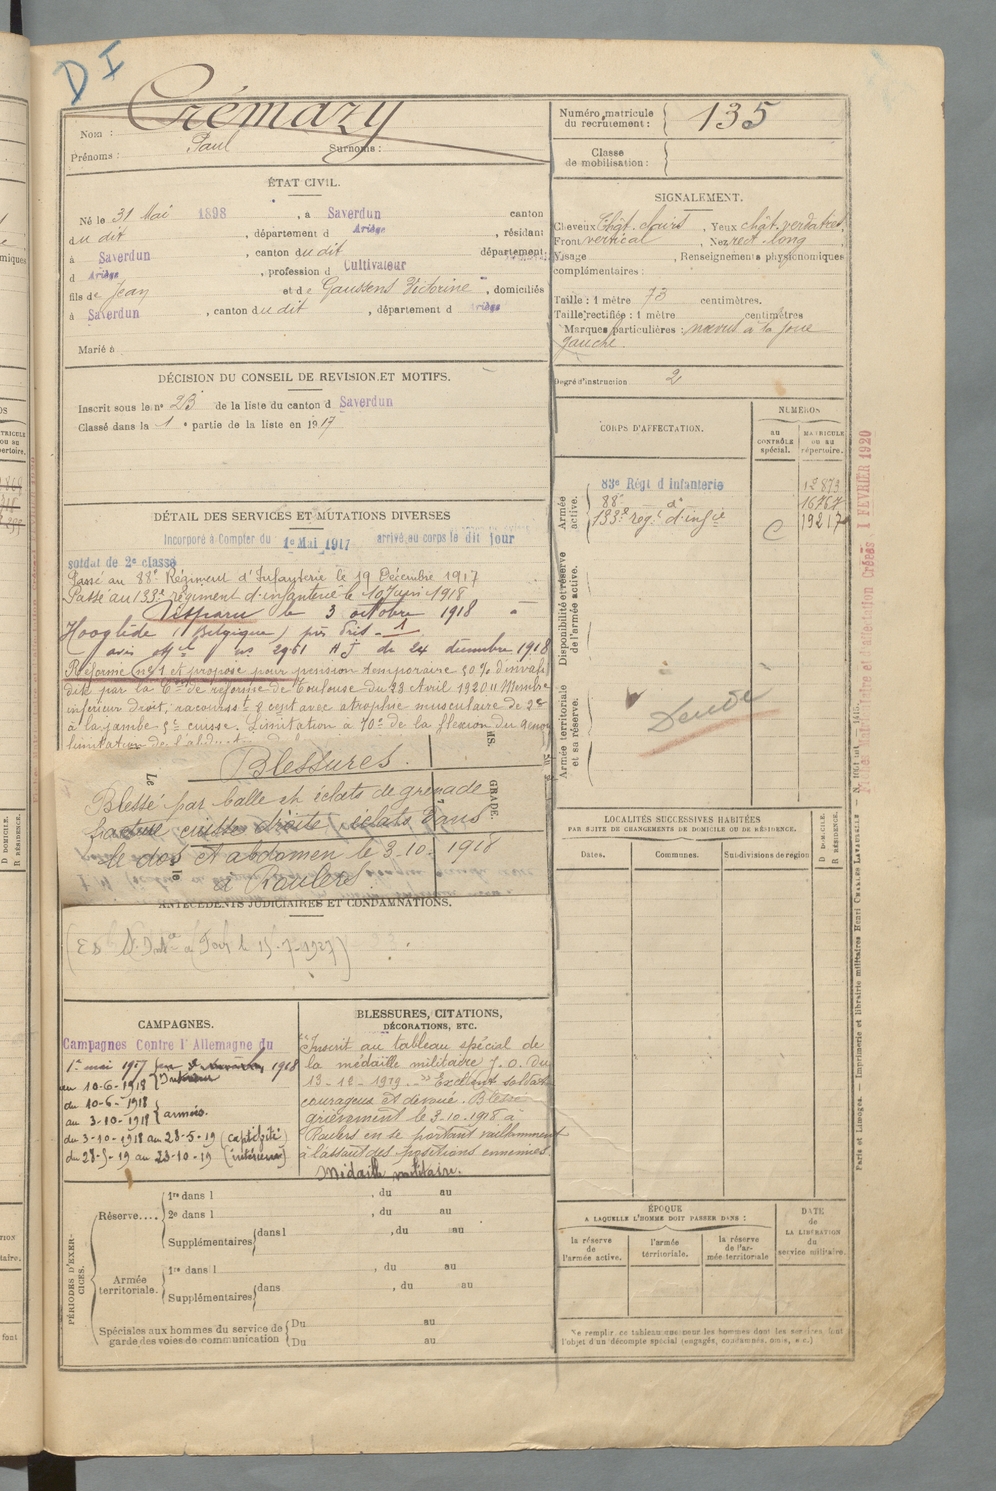 D I
Crémazy
Nom :
Prénoms : Paul Surnoms :
Numéro matricule du recrutement : 135
Classe de mobilisation :
ÉTAT CIVIL.
Né le 31 Mai 1898, à Saverdun canton
du dit, département d Ariège, résidant
à Saverdun, canton du dit département
d Ariège, profession d Cultivateur
fils de Jean et de Gaussens Victorine, domiciliés
à Saverdun, canton du dit, département d Ariège
Marié à
SIGNALEMENT.
Cheveux Chât. clairs, Yeux chât. verdâtres,
Front vertical, Nez rect. long
Visage , Renseignements physionomiques
complémentaires :
Taille : 1 mètre 73 centimètres.
Taille rectifiée : 1 mètre centimètres
Marques particulières : nœvus à la joue
gauche.
Degré d'instruction 2
DÉCISION DU CONSEIL DE REVISION ET MOTIFS.
Inscrit sous le n° 23 de la liste du canton d Saverdun
Classé dans la 1e partie de la liste en 1917
DÉTAIL DES SERVICES ET MUTATIONS DIVERSES
Incorporé à Compter du 1er Mai 1917 arrivé au corps le dit jour
soldat de 2e classe
Passé au 88e Régiment d'Infanterie le 19 Décembre 1917
Passé au 133e régiment d'infanterie le 10 Juin 1918
Disparu le 3 octobre 1918
Hooglède (Belgique) pris
avis off el n° 2951 H J du 24 décembre 1918
Réformé (n°1 et proposé pour pension temporaire 50 % d'invali
dité par la Con de réforme de Toulouse du 28 Avril 1920 Membre
inférieur droit, raccourss t 8 cent avec atrophie musculaire de 2c
à la jambe 5c cuisse. Limitation à 70° de la flexion du genou
limitation de l'
Blessures.
Blessé par balle et éclats de grenade
fracture cuisse droite éclats dans
le dos et abdomen le 3-10-1918
à Roulers.
GRADE.
ANTÉCÉDENTS JUDICIAIRES ET CONDAMNATIONS.
Foix le 15-7-1927
CORPS D'AFFECTATION.
NUMÉROS
au CONTRÔLE spécial.
MATRICULE ou au répertoire.
Armée active.
83e Régt d Infanterie 12873
88e do 16767
133e regt d'infie C 19217
Disponibilité et réserve de l'armée active.
Armée territoriale et sa réserve.
LOCALITÉS SUCCESSIVES HABITÉES
PAR SUITE DE CHANGEMENTS DE DOMICILE OU DE RÉSIDENCE.
D DOMICILE.
R RÉSIDENCE.
Dates.
Communes.
Subdivisions de région
CAMPAGNES.
Campagnes Contre l'Allemagne du
1er mai 1917
au 10-6-1918 Intérieur
du 10-6-1918
au 3-10-1918 armées.
du 3-10-1918 au 28-5-19 (captivité)
du 28-5-19 au 23-10-19 (intérieur)
BLESSURES, CITATIONS,
DÉCORATIONS, ETC.
"Inscrit au tableau spécial de
la médaille militaire J.O. du
"Excellent soldat
courageux et dévoué. Blessé
grièvement le 3-10-1918 à
Roulers en se portant vaillamment
à l'assaut des positions ennemies.
Médaille militaire.
PÉRIODES D'EXERCICES.
Réserve....
1re dans l , du au
2e dans l , du au
Supplémentaires dans l , du au
Armée territoriale.
1re dans l , du au
Supplémentaires dans , du au
Spéciales aux hommes du service de
garde des voies de communication
Du au
Du au
ÉPOQUE
A LAQUELLE L'HOMME DOIT PASSER DANS :
la réserve de l'armée active.
l'armée territoriale.
la réserve de l'armée territoriale
DATE de LA LIBÉRATION du service militaire.
Ne remplir ce tableau que pour les hommes dont les services font
l'objet d'un décompte spécial (engagés, condamnés, omis, etc.)
Paris et Limoges. — Imprimerie et librairie militaires Henri CHARLES-LAVAUZELLE
1 FEVRIER 1920